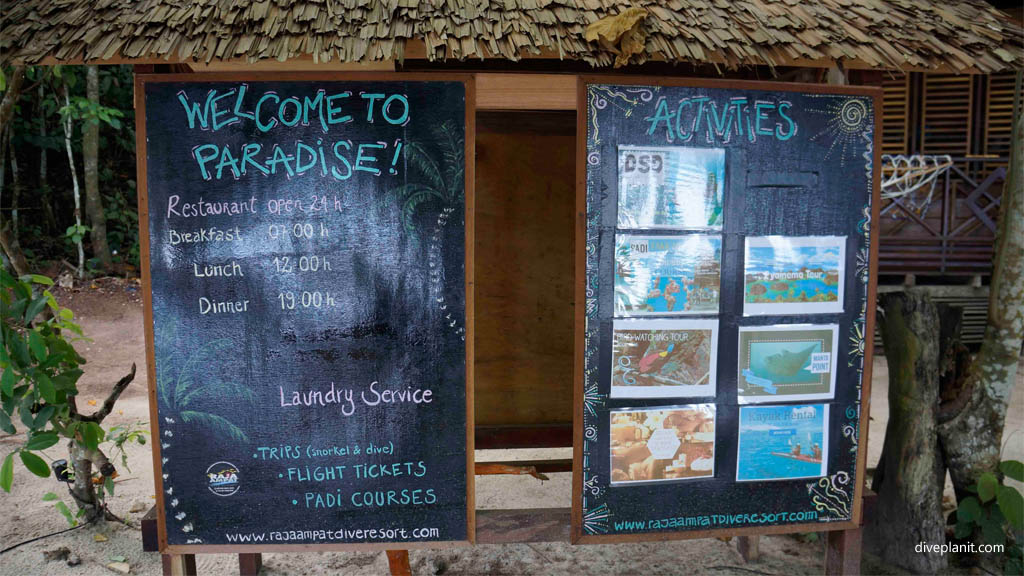 WELCOME TO
PARADISE!
Restaurant open 24 h
Breakfast 07:00 h
Lunch 12:00 h
Dinner 19:00 h
Laundry Service
• TRIPS (snorkel & dive)
• FLIGHT TICKETS
• PADI COURSES
WWW.RAJAAMPATDIVERESORT.COM
ACTIVITIES
DSD
PADI
Kayak Rental
BIRD WATCHING TOUR
MANTA
POINT
WWW.RAJAAMPATDIVERESORT.COM
diveplanit.com